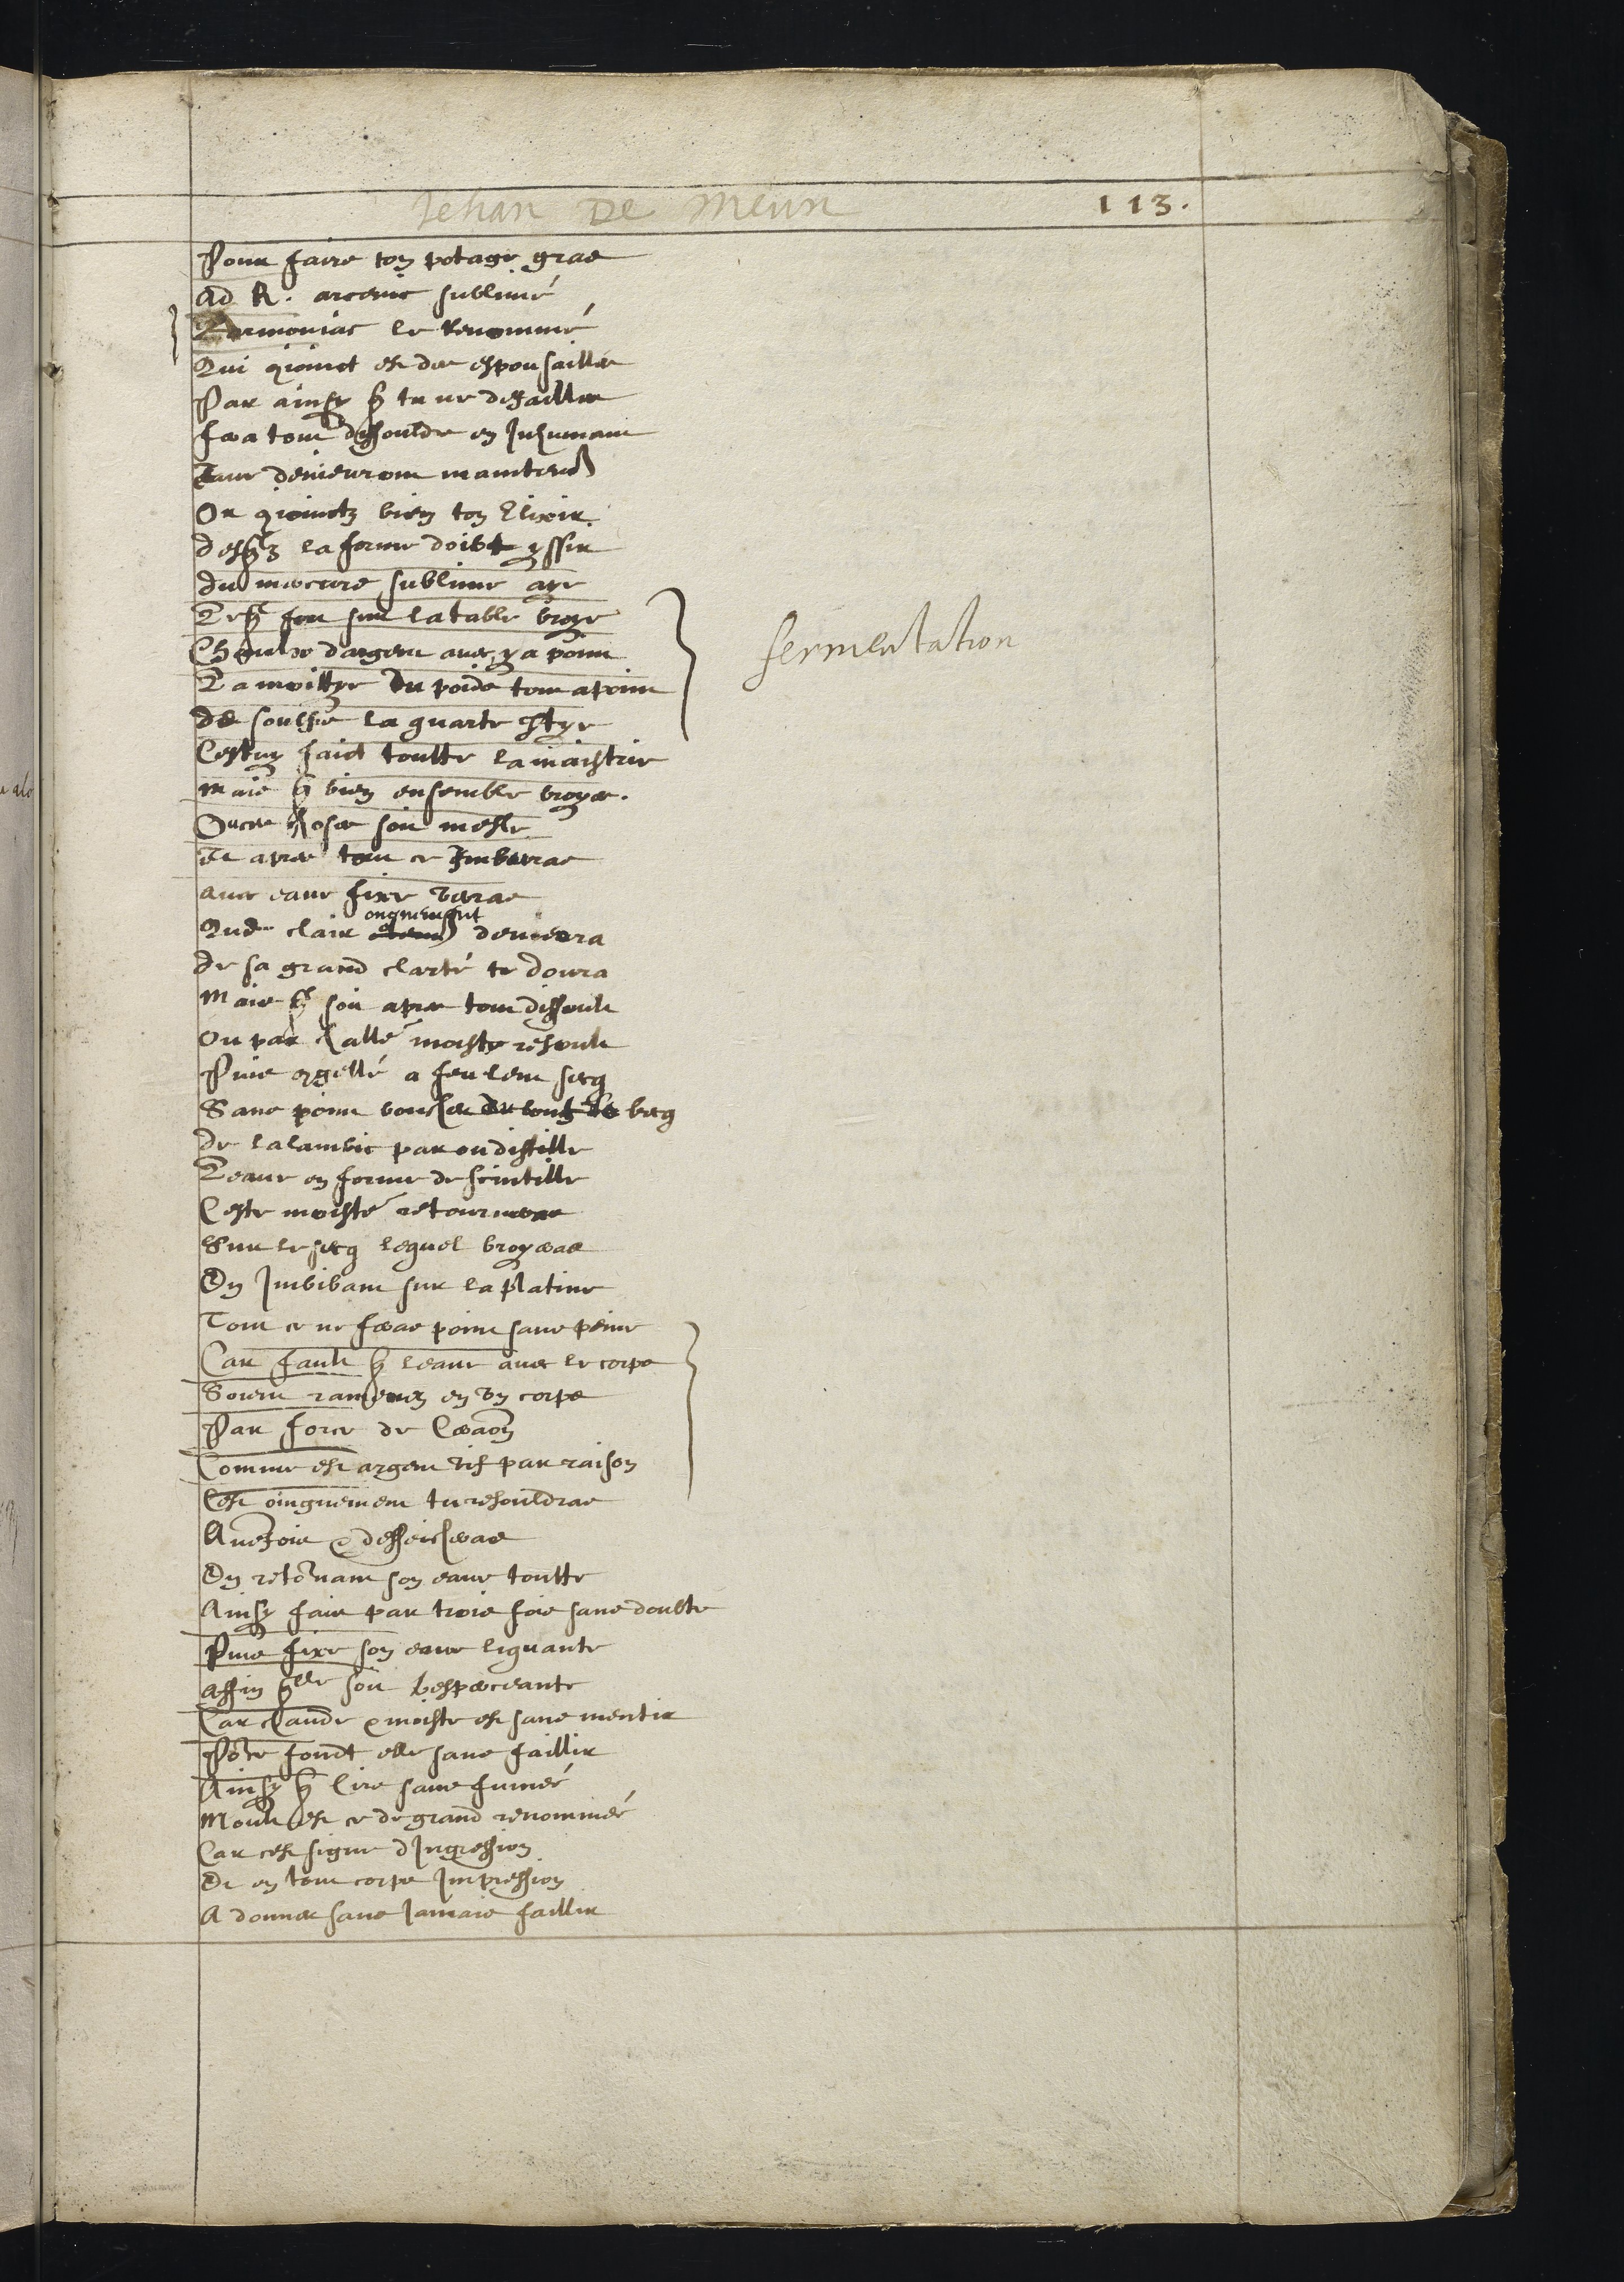 Jehan De Meun
113.
Pour faire ton potage gras
Ad R. arcenic sublimé
L armoniac le renommé
Qui conioinct est des espousailles
Par ainsy q tu ne defailles
fera tout dissouldre en Inhumant
Tant demeurront maintend
Or conioinctz bien ton Elixir
desqlz la forme doibt yssir
du mercure sublime aye
Lesq fou sur la table broye
Chaulx dargent avec y a point
La moittye du poidz tout a point
de soulfre la quarte ptye
Cestuy faict toutte la maistrie
Mais q bien ensemble broyer
chose soit mesle
Et apres tout ce Imberas
avec eaue fixe verras
Que clair ongnement demeura
de sa grand clarté te doura
Mais q soit apres tout dissoult
Ou par challe moiste resoult
Puis congellé a feu lent secq
Sans point boucher becq
de lalambic par ou distille
Leaue en forme de scintille
Ceste moisté retourneras
Sur le secq lequel broyeras
En Imbibant sur la platine
Tout ce ne feras point sans peine
Car fault q leaue avec le corps
Soient ramenez en un corps
Par force de
Comme est argent vif par raison
Cest oingnement tu resouldras
Autrefois & desseicheras
En retornant son eaue toutte
Ainsy faix par trois fois sans doubte
Puis fixe son eaue liquante
affin qlle soit
Car chaude & moiste est sans mentir
Por ce fondt elle sans faillir
Ainsy q cire sans fumée
Moult est ce de grand renommée
Car cest signe d Ingression
Et en tout corps Impression
A donner sans Jamais faillir
fermentation